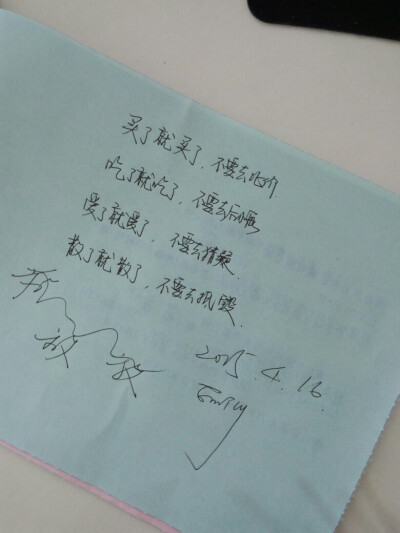 买了就买了，不要去比价
吃了就吃了，不要去后悔
爱了就爱了，不要去猜疑.
散了就散了，不要去诋毁.
2015.4.16.
Emily